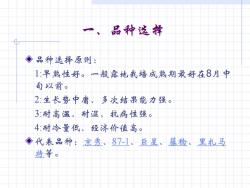 一、品种选择
品种选择原则:
1:早熟性好。一般露地栽培成熟期最好在8月中
旬以前。
2:生长势中庸、多次结果能力强。
3:耐高温、耐湿、抗病性强。
4:耐冷量低、经济价值高。
代表品种:京秀、87-1、巨星、藤稔、里扎马
特等。